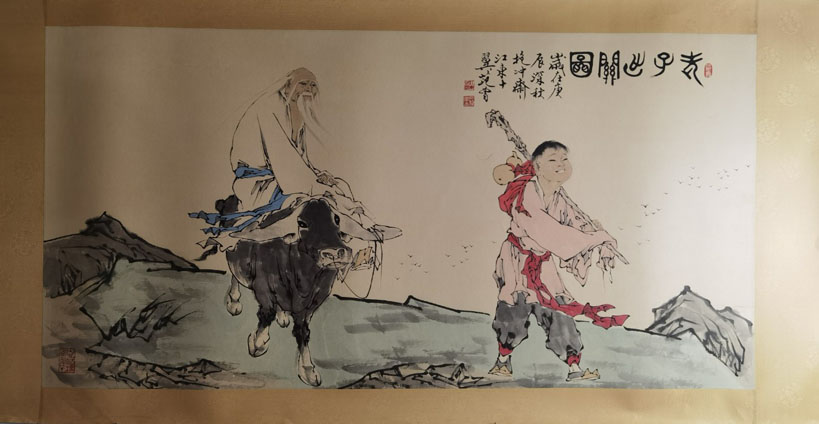 老子出關圖
歲在庚
辰深秋
抱冲齋
江東十
翼范曾